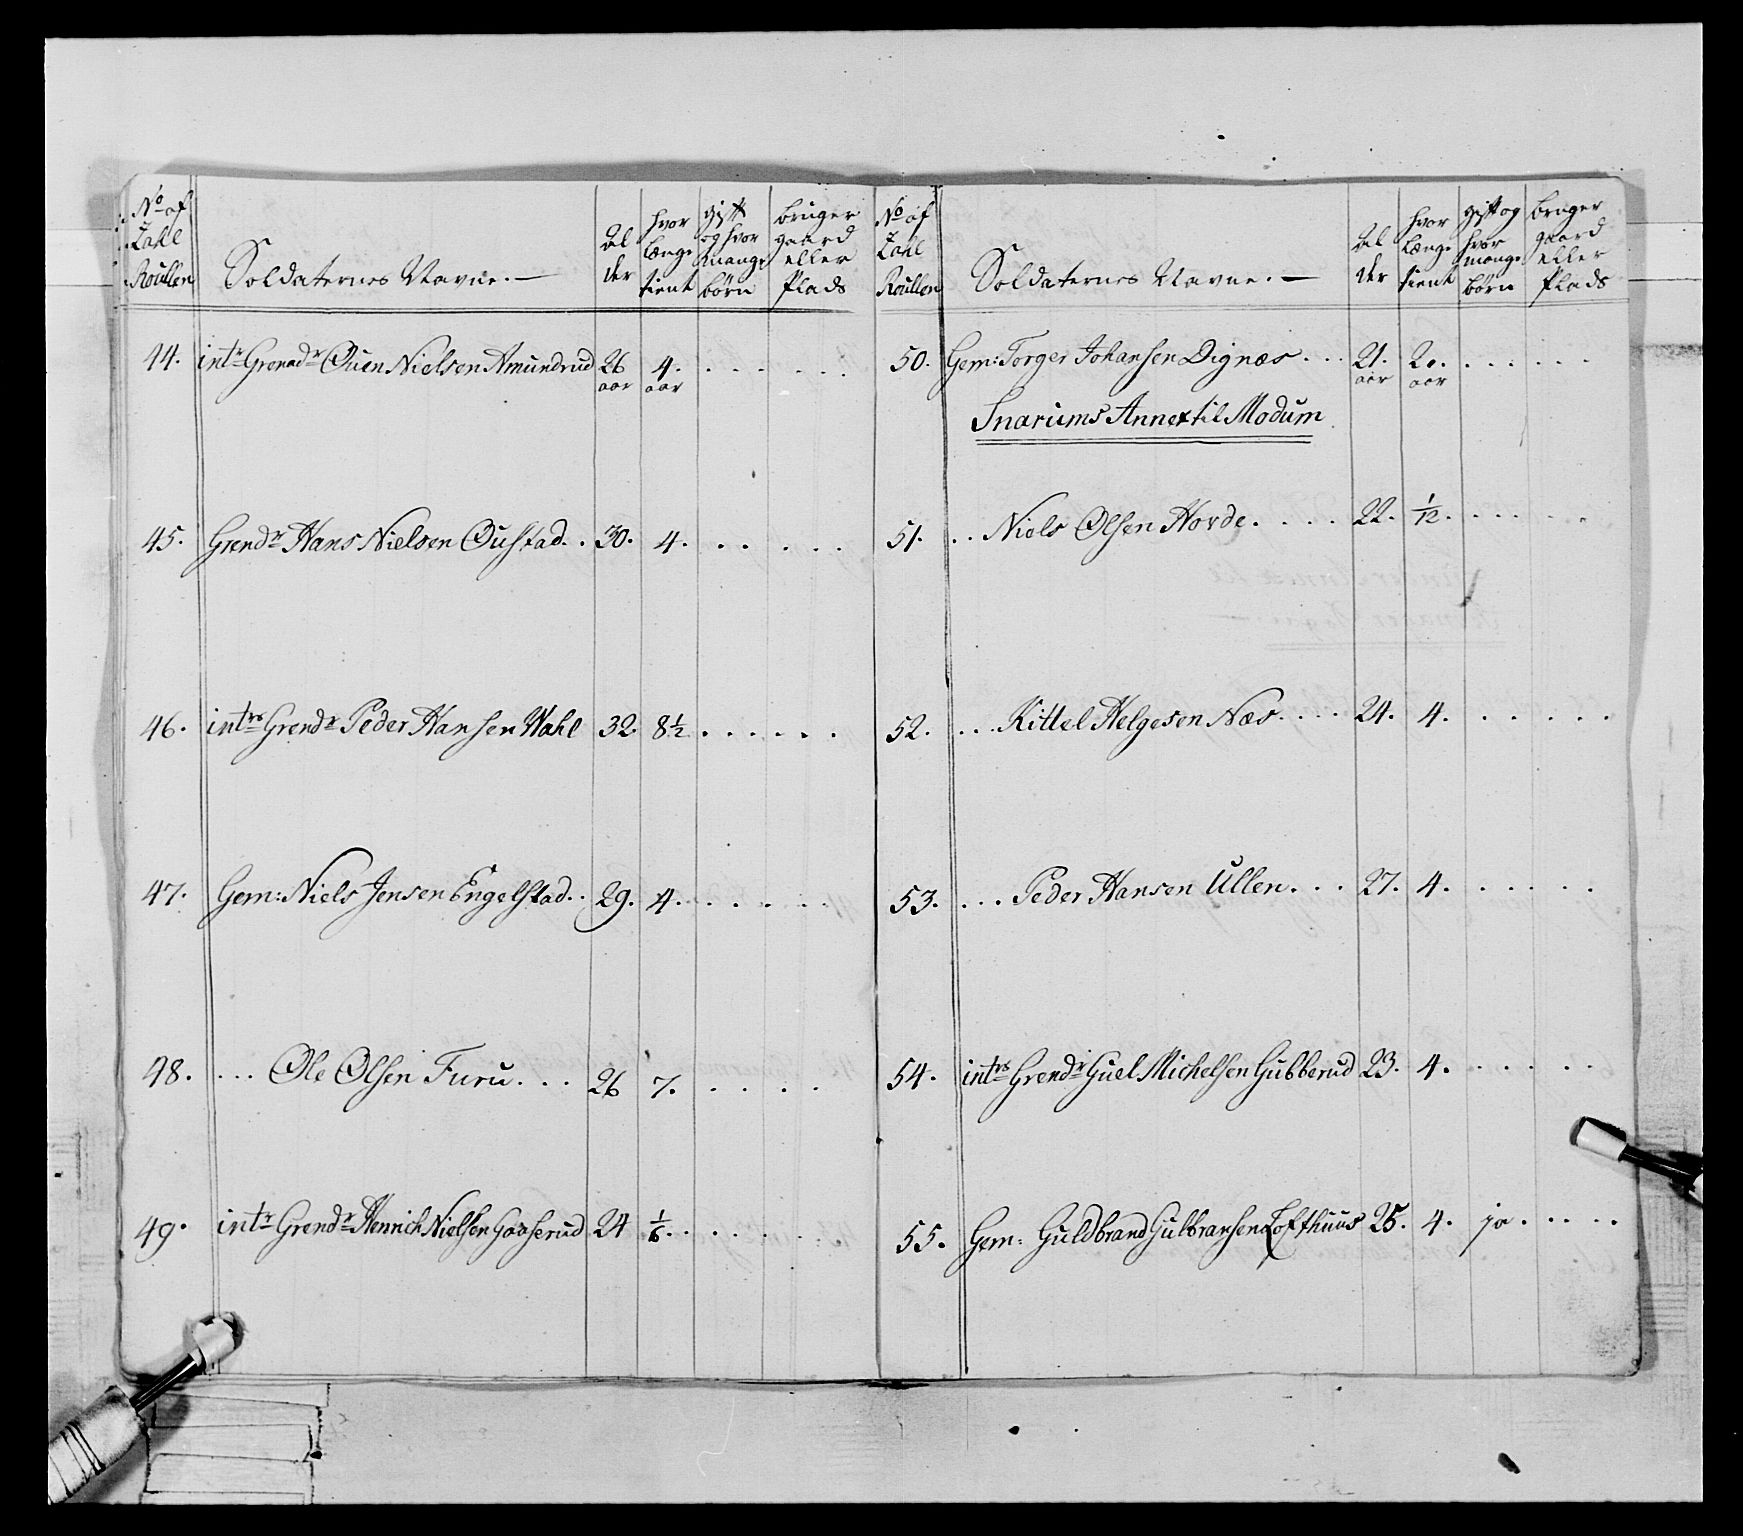 No af Zahl Roullen | Soldaternes Navne. — | Al der | hvor længe tient | gift og hvor mange børn | bruger gaard eller Plads
44. intr Grenadr Ouen Nielsen Amundrud 26 aar 4. aar
45. Grendr Hans Nielsen Oustad. . 30. 4.
46. intrs Grendr Peder Hansen Wahl 32. 8 1/2
47. Gem: Niels Jensen Engelstad. . 29. 4.
48. . . . Ole Olsen Furu. . . 26 7.
49. intr Grendr Henrich Nielsen Gaaserud 24 1/6.
No af Zahl Roullen | Soldaternes Navne. — | Al der | hvor længe tient | gift og hvor mange børn | bruger gaard eller Plads
50. Gem: Torger Johansen Dignæs. . . 21. aar 2. aar
Snarums Annex til Modum
51. . . Niels Olsen Horde. . . . 22. 1/12.
52. . . . Kittel Helgesen Næs. . . . 24. 4.
53. . . . Peder Hansen Ullen. . . 27. 4.
54. intrs Grendr Guel Michelsen Gubberud 23. 4.
55. Gem: Guldbrand Gulbransen Lofthuus 25. 4. ja